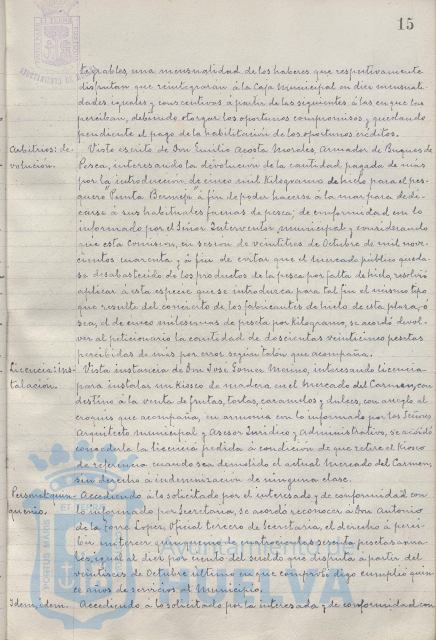 15
tegrables, una mensualidad de los haberes que respectivamente
disfrutan que reintegrarán á la Caja Municipal en diez mensuali-
dades iguales y consecutivas á partir de las siguientes á las en que las
perciban, debiendo otorgar los oportunos compromisos y quedando
pendiente el pago de la habilitación de los oportunos créditos.
Arbitrios: de-
volución.
Visto escrito de Don Emilio Acosta Morales, Armador de Buques de
Pesca, interesando la devolución de la cantidad pagada de más
por la introducción de cinco mil Kilogramos de hielo para el pes-
quero "Punta Bermeja" á fin de poder hacerse á la mar para dedi-
carse á sus habituales faenas de pesca; de conformidad con lo
informado por el Señor Interventor municipal y considerando
que esta Comisión, en sesión de veintitres de Octubre de mil nove-
cientos cuarenta y á fin de evitar que el mercado público queda-
se desabastecido de los productos de la pesca por falta de hielo, resolvió
aplicar á esta especie que se introduzca para tal fin el mismo tipo
que resulte del concierto de los fabricantes de hielo de esta plaza, ó
sea, el de cinco milésimas de peseta por kilogramo, se acordó devol-
ver al peticionario la cantidad de doscientas veinticinco pesetas
percibidas de más por error según talón que acompaña.
Licencia: ins-
talación.
Vista instancia de Don José Gómez Momo, interesando licencia
para instalar un Kiosco de madera, en el Mercado del Carmen, con
destino á la venta de frutas, tortas, caramelos y dulces, con arreglo al
croquis que acompaña, en armonía con lo informado por los Señores
Arquitecto municipal y Asesor Jurídico y Administrativo, se acordó
concederle la licencia pedida á condición de que retire el Kiosco
de referencia cuando sea demolido el actual Mercado del Carmen,
sin derecho á indemnización de ninguna clase.
Personal: quin-
quenio.
Accediendo á lo solicitado por el interesado y de conformidad con
lo informado por Secretaría, se acordó reconocer á Don Antonio
de la Torre López, Oficial tercero de Secretaría, el derecho á perci-
bir un tercer quinquenio de cuatrocientas sesenta pesetas anua-
les, igual al diez por ciento del sueldo que disfruta á partir del
veintiseis de Octubre último en que comprobó digo cumplió quin-
ce años de servicios al Municipio.
Idem, idem.
Accediendo á lo solicitado por la interesada y de conformidad con